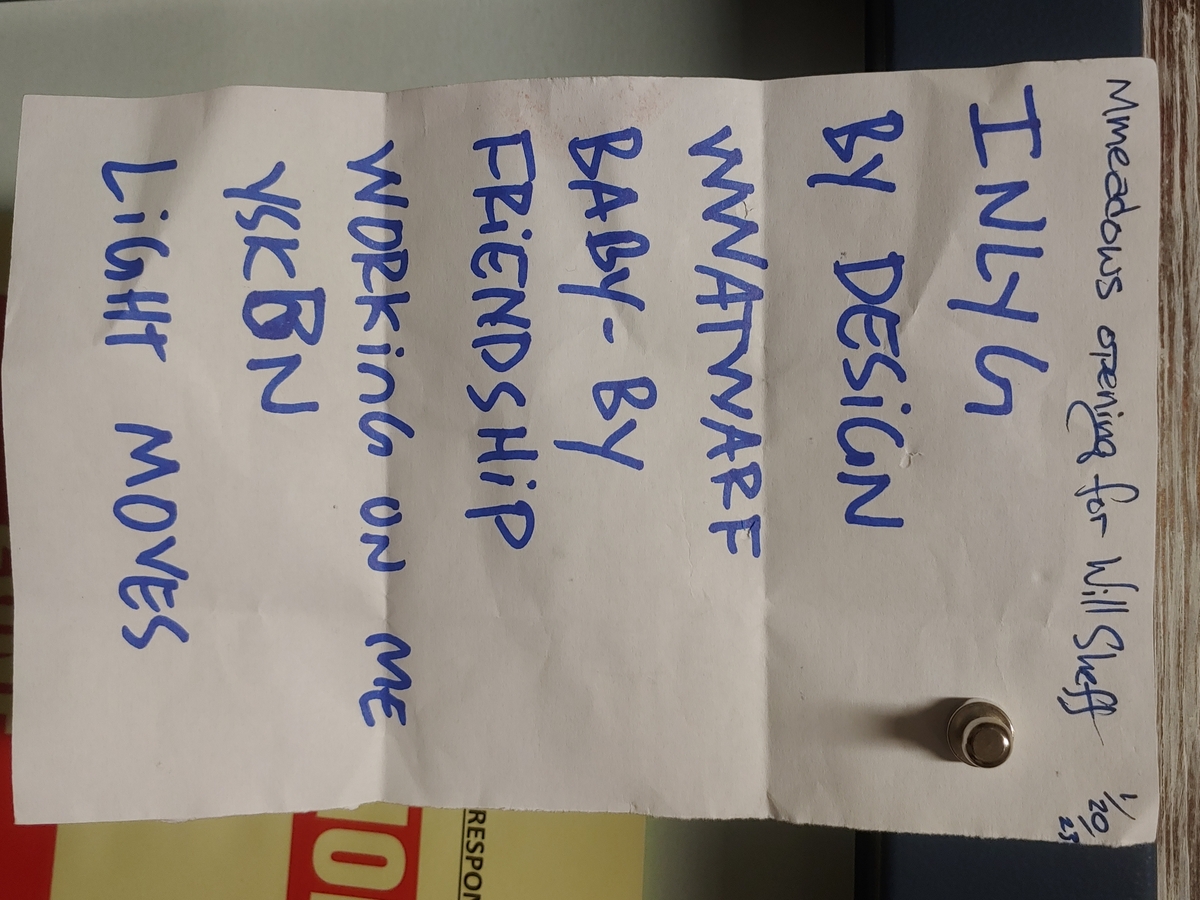 Mmeadows opening for Will Sheff 1/20/25
INLYG
BY DESIGN
WWATWARF
BABY-BY
FRIENDSHIP
WORKING ON ME
YSKBN
LIGHT MOVES
RESPON